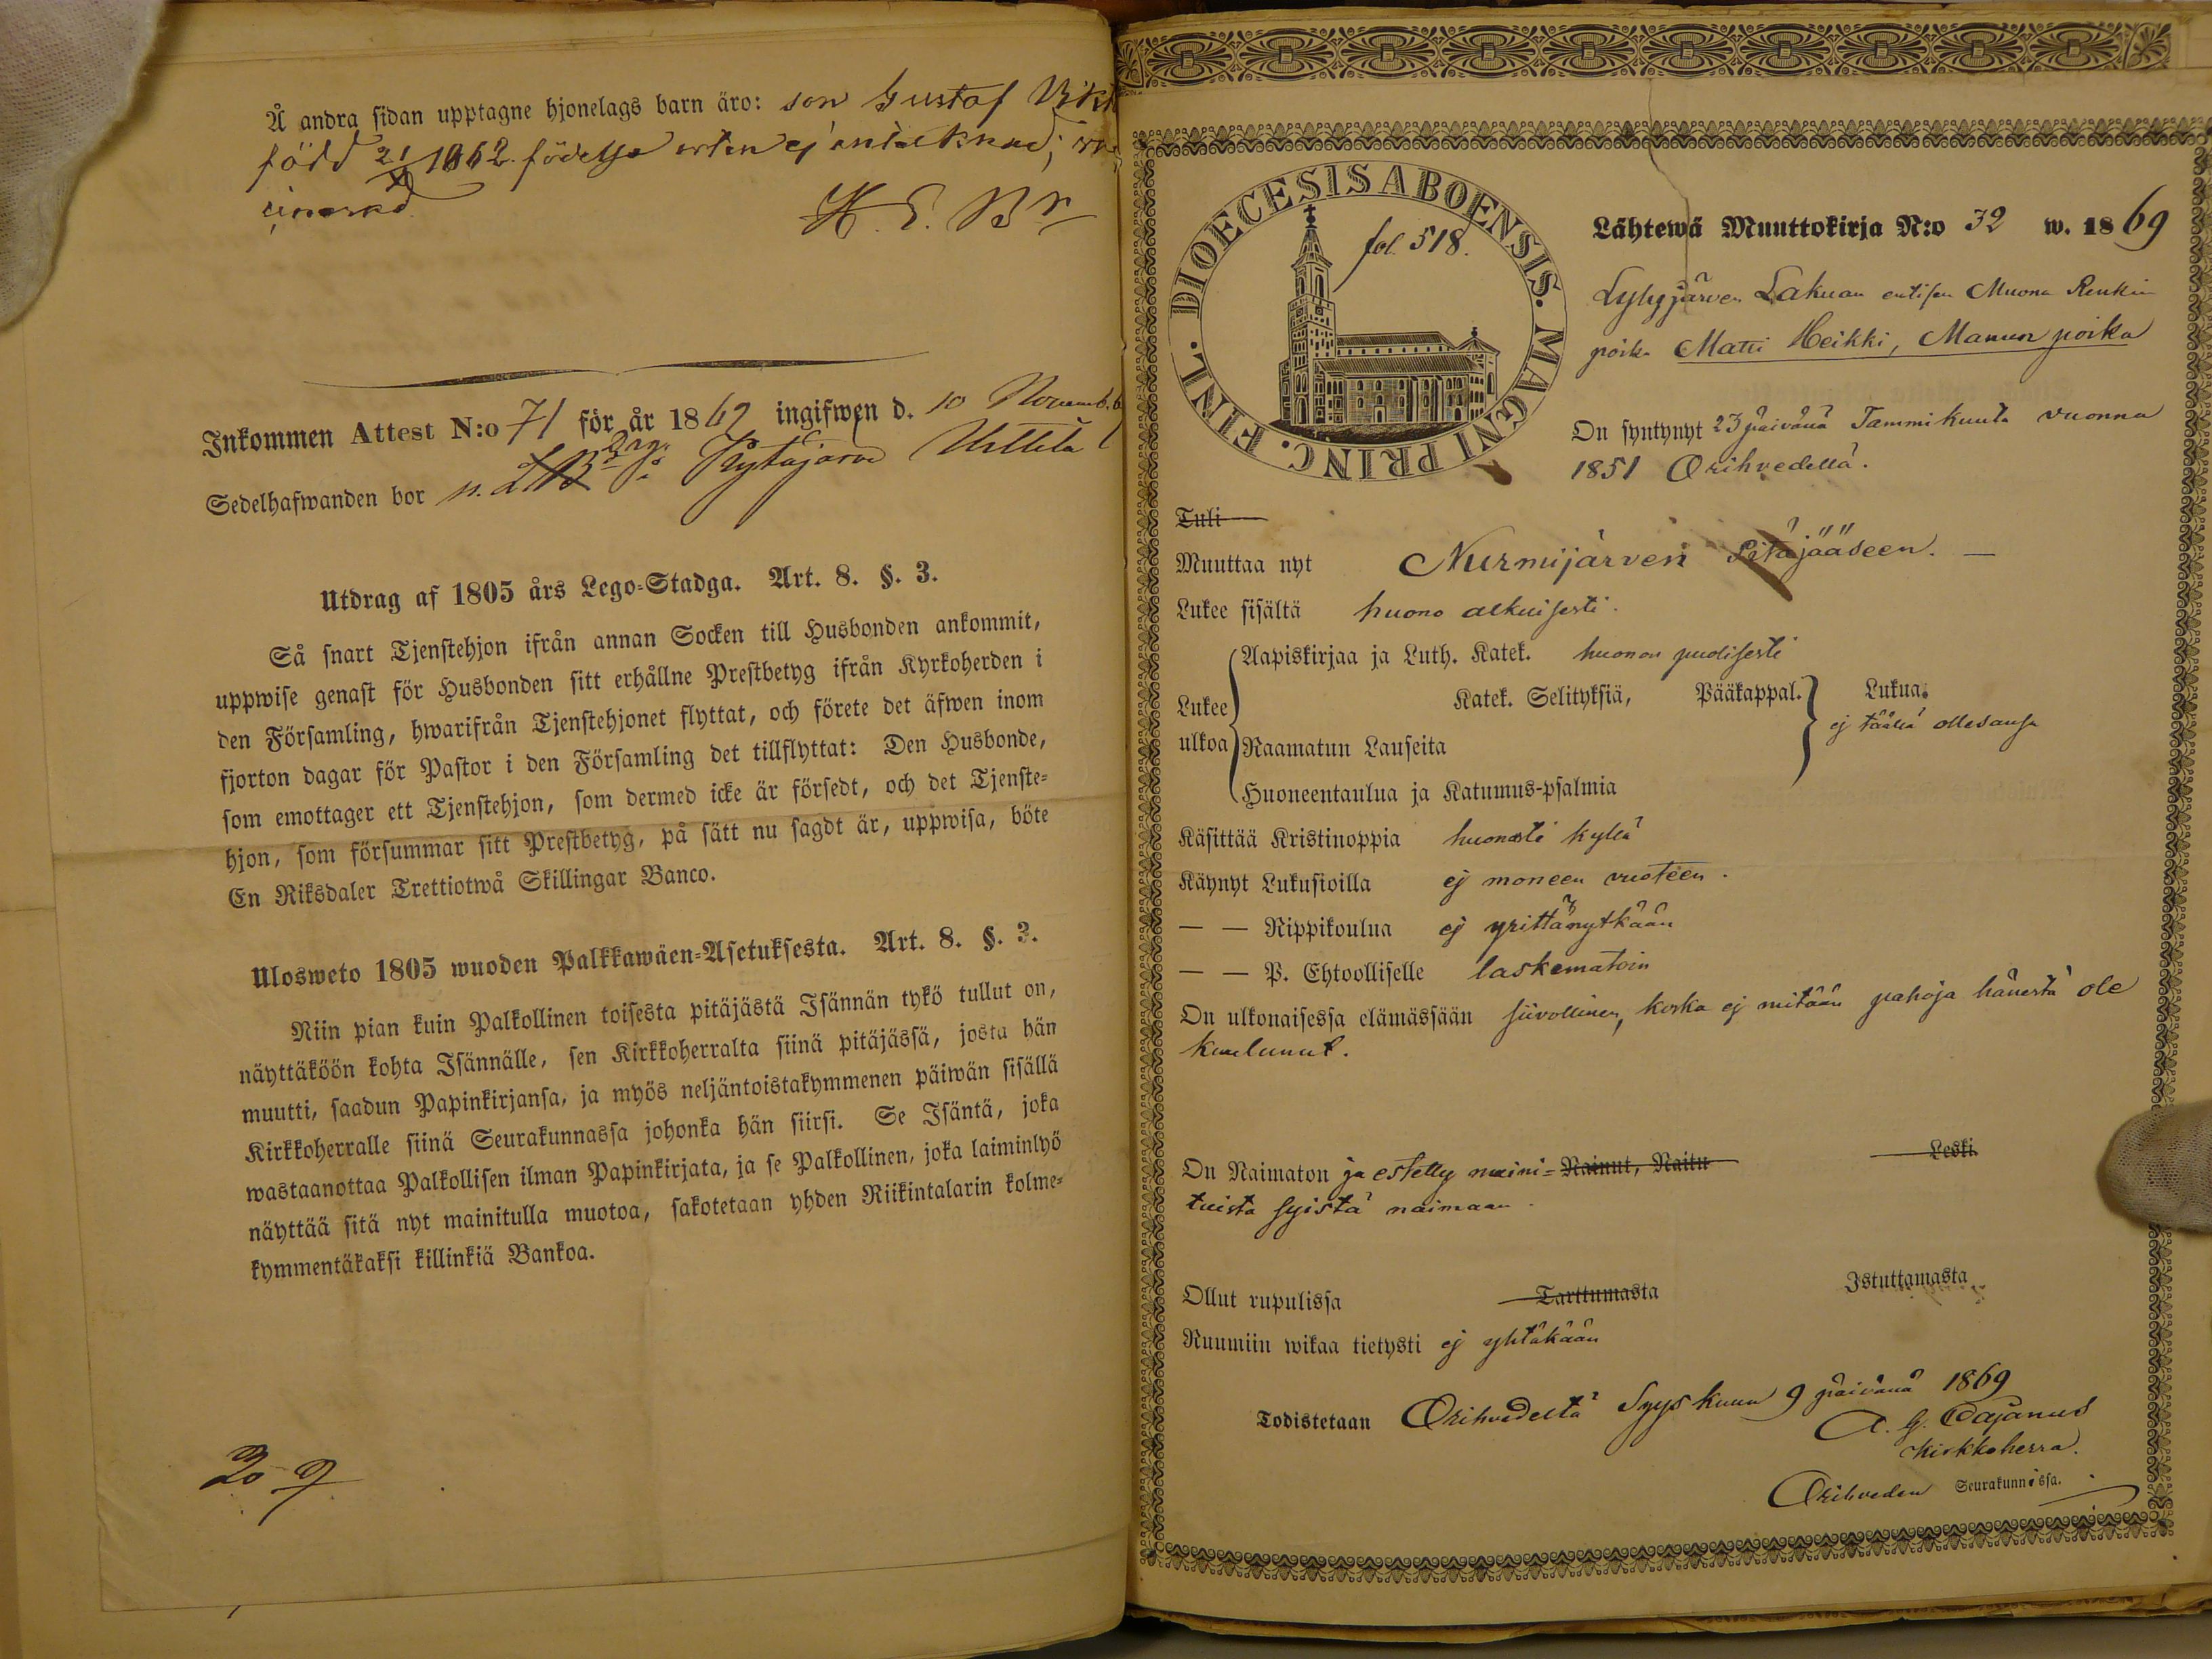 Å andra sidan upptagne hjonelags barn äro: son Gustaf
född 21 1862. födelse orten ej antecknad;
H. E. Br
Inkommen Attest N:o 71 för år 1869 ingifwen d. 10 Novemb.
Sedelhafwanden bor
Utdrag af 1805 års Lego-Stadga. Art. 8. §. 3.
Så snart Tjenstehjon ifrån annan Socken till Husbonden ankommit,
uppwise genast för Husbonden sitt erhållne Prestbetyg ifrån Kyrkoherden i
den Församling, hwarifrån Tjenstehjonet flyttat, och förete det äfwen inom
fjorton dagar för Pastor i den Församling det tillflyttat: Den Husbonde,
som emottager ett Tjenstehjon, som dermed icke är försedt, och det Tjenste-
hjon, som försummar sitt Prestbetyg, på sätt nu sagdt är, uppwisa, böte
En Riksdaler Trettiotwå Skillingar Banco.
Ulosweto 1805 wuoden Palkkawäen-Asetuksesta. Art. 8. §. 3.
Niin pian kuin Palkollinen toisesta pitäjästä Isännän tykö tullut on,
näyttäköön kohta Isännälle, sen Kirkkoherralta siinä pitäjässä, josta hän
muutti, saadun Papinkirjansa, ja myös neljäntoistakymmenen päiwän sisällä
Kirkkoherralle siinä Seurakunnassa johonka hän siirsi. Se Isäntä, joka
wastaanottaa Palkollisen ilman Papinkirjata, ja se Palkollinen, joka laiminlyö
näyttää sitä nyt mainitulla muotoa, sakotetaan yhden Riikintalarin kolme-
kymmentäkaksi killinkiä Bankoa.
DIOECESIS ABOENSIS. MAGNI PRINC. FINL.
fol. 518.
Lähtewä Muuttokirja N:o 32 w. 1869
Lyly järven Lakuan entisen Muona Renkin
poika Matti Heikki, Manun poika
On syntynyt 23 päivänä Tammikuuta vuonna
1851 Orihvedellä.
Tuli
Muuttaa nyt Nurmijärven Pitäjääseen. —
Lukee sisältä huono alkuisesti.
Aapiskirjaa ja Luth. Katek. huonon puolisesti
Lukee ulkoa
Katek. Selityksiä, Pääkappal. Lukua.
ej täällä ollesansa
Raamatun Lauseita
Huoneentaulua ja Katumus-psalmia
Käsittää Kristinoppia huonosti kyllä
Käynyt Lukusioilla ej moneen vuoteen.
— — Rippikoulua ej yrittänytkään
— — P. Ehtoolliselle laskematoin
On ulkonaisessa elämässään siivollinen, koska ej mitään pahoja hänestä ole
kuulunut.
On Naimaton ja estetty maini= Nainut, Naitu Leski
tuista syistä naimaan.
Ollut rupulissa Tarttumasta Istuttamasta
Ruumiin wikaa tietysti ej yhtäkään
Todistetaan Orihvedeltä Syyskuun 9 päivänä 1869
A. G. Dajanus
Kirkkoherra.
Orihveden Seurakunnassa.